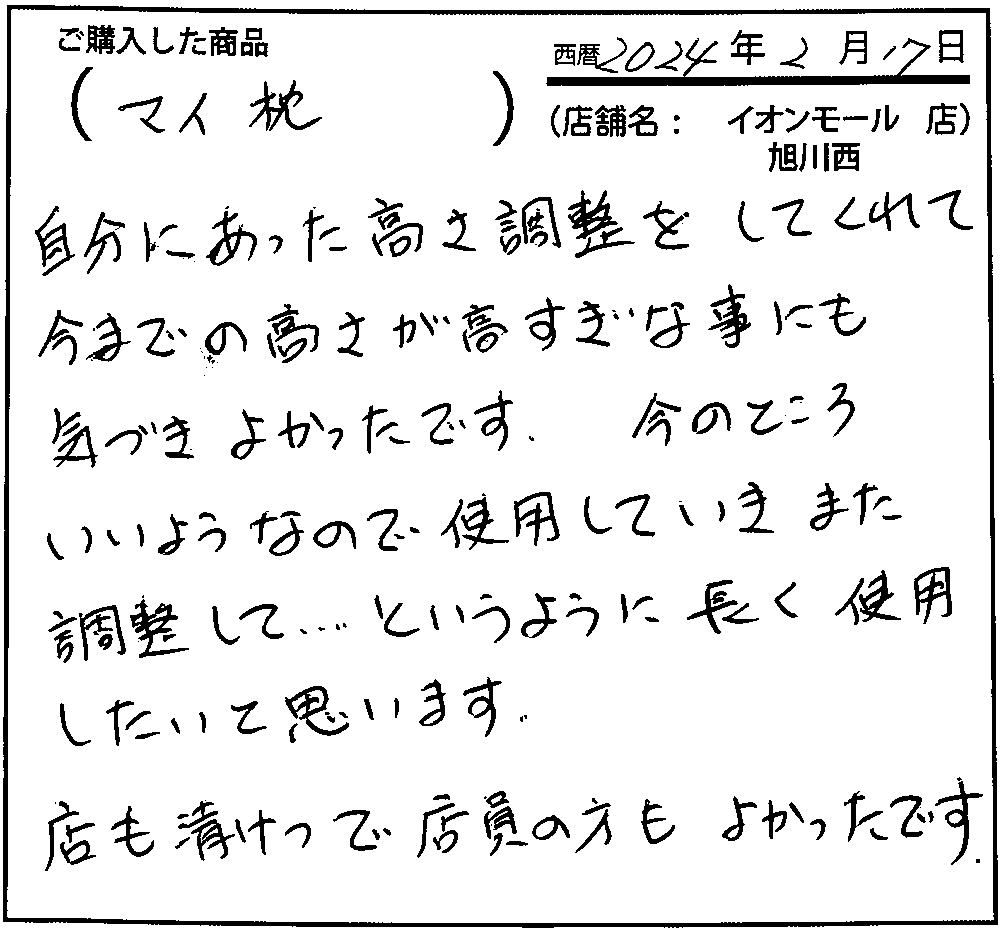 ご購入した商品
(マイ枕)
西暦2024年2月17日
(店舗名: イオンモール 店)
旭川西
自分にあった高さ調整をしてくれて
今までの高さが高すぎな事にも
気づきよかったです. 今のところ
いいようなので使用していきまた
調整して…というように長く使用
したいと思います.
店も清けつで店員の方もよかったです.